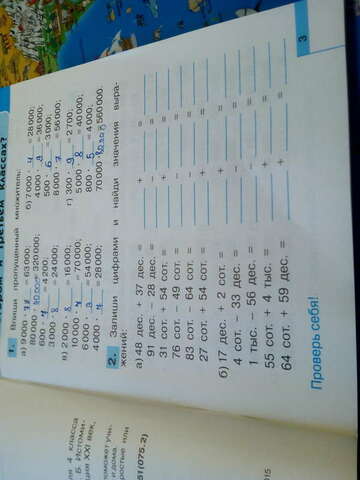 третьем классах?
1. Впиши пропущенный множитель:
а) 9 000 · = 63 000;
80 000 · = 320 000;
600 · 7 = 4 200;
3 000 · 8 = 24 000;
в) 2 000 · 8 = 16 000;
10 000 · 7 = 70 000;
6 000 · 9 = 54 000;
4 000 · 7 = 28 000;
б) 7 000 · 4 = 28 000;
4 000 · 9 = 36 000;
500 · 6 = 3 000;
8 000 · 7 = 56 000;
г) 300 · 9 = 2 700;
5 000 · 8 = 40 000;
800 · 5 = 4 000;
70 000 · = 560 000.
2. Запиши цифрами и найди значения выра-
жений:
а) 48 дес. + 37 дес. = + =
91 дес. − 28 дес. = − =
31 сот. + 54 сот. = + =
76 сот. − 49 сот. = − =
83 сот. − 64 сот. = − =
27 сот. + 54 сот. = + =
б) 17 дес. + 2 сот. = + =
4 сот. − 33 дес. = − =
1 тыс. − 56 дес. = − =
55 сот. + 4 тыс. = + =
64 сот. + 59 дес. = + =
Проверь себя!
3
4 класса
Б. Истоми-
XXI век,
или
61(075.2)